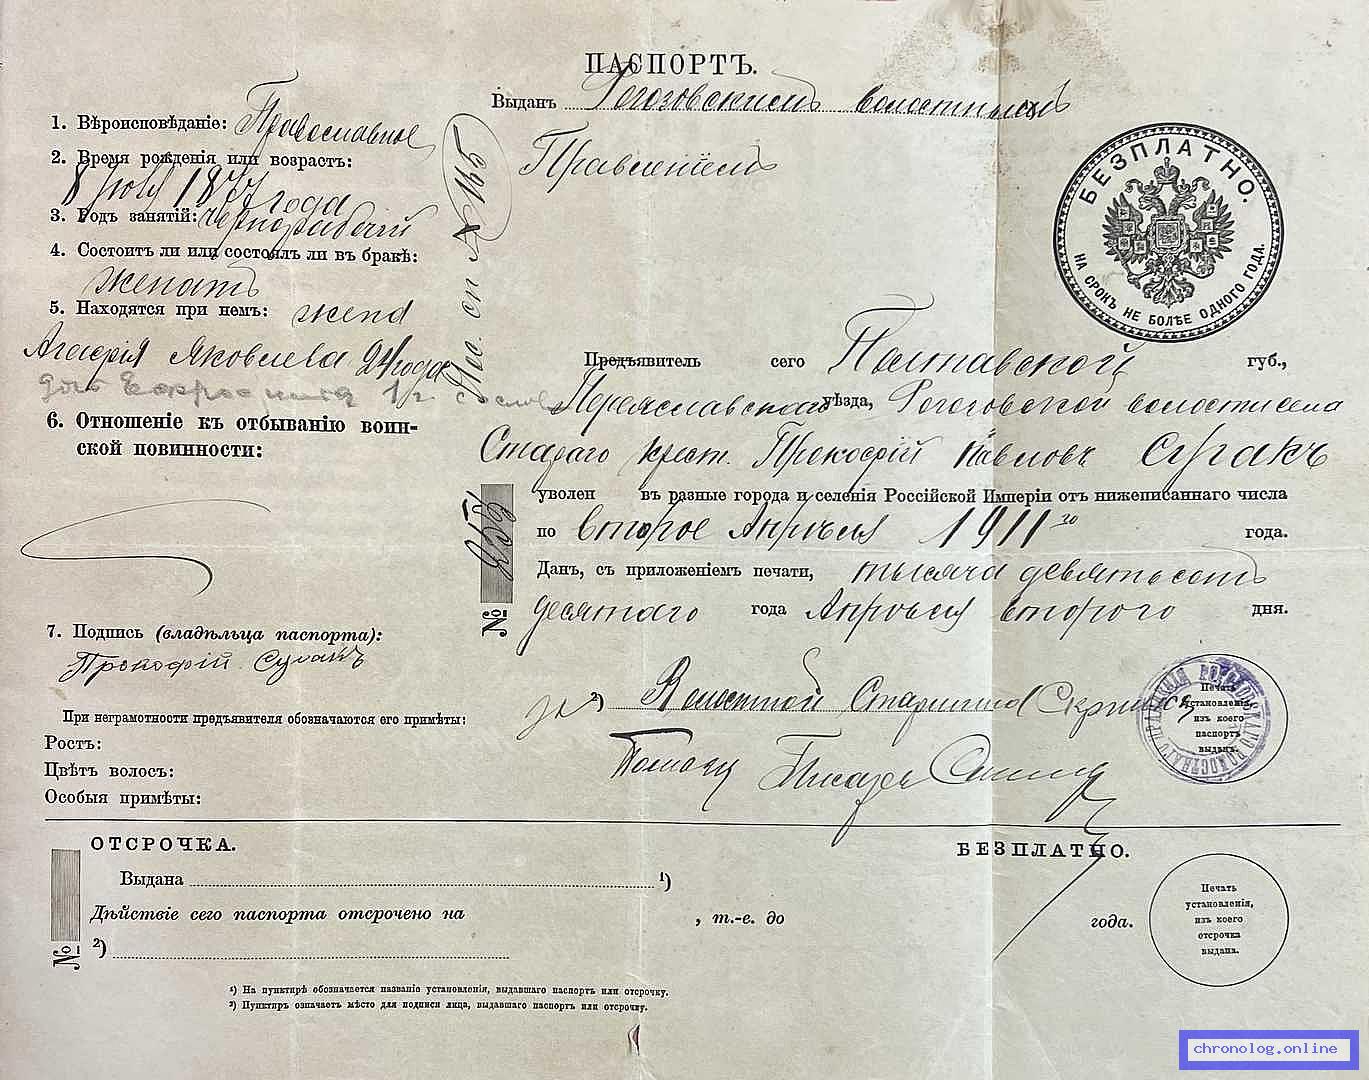 ПАСПОРТЪ.
Выданъ Рогозовскимъ волостнымъ
Правленіемъ
1. Вѣроисповѣданіе: Православное
2. Время рожденія или возрастъ:
8 1877 года
3. Родъ занятій: чернорабочій
4. Состоитъ ли или состоялъ ли въ бракѣ:
женатъ
5. Находятся при немъ: жена
Агафія Яковлева 24 года
6. Отношеніе къ отбыванію воин-
ской повинности:
7. Подпись (владѣльца паспорта):
Прокофій Сулакъ
При неграмотности предъявителя обозначаются его примѣты:
Ростъ:
Цвѣтъ волосъ:
Особыя примѣты:
№ 165
БЕЗПЛАТНО.
НА СРОКЪ НЕ БОЛѢЕ ОДНОГО ГОДА.
Предъявитель сего Полтавской губ.,
Переяславскаго уѣзда, Рогозовской волости села
Стараго крест. Прокофій Павловъ Сулакъ
уволен въ разные города и селенія Россійской Имперіи отъ нижеписаннаго числа
по второе Апрѣля 1911 го года.
Данъ, съ приложеніемъ печати, тысяча девятьсотъ
десятаго года Апрѣля второго дня.
№
за 2) Волостной Старшина
Помощ Писаря
Печать
установленія,
изъ коего
паспортъ
выданъ.
ОТСРОЧКА.
БЕЗПЛАТНО.
Выдана 1)
Дѣйствіе сего паспорта отсрочено на , т.-е. до года.
№
2)
Печать
установленія,
изъ коего
отсрочка
выдана.
1) На пунктирѣ обозначается названіе установленія, выдавшаго паспортъ или отсрочку.
2) Пунктиръ означаетъ мѣсто для подписи лица, выдавшаго паспортъ или отсрочку.
chronolog.online